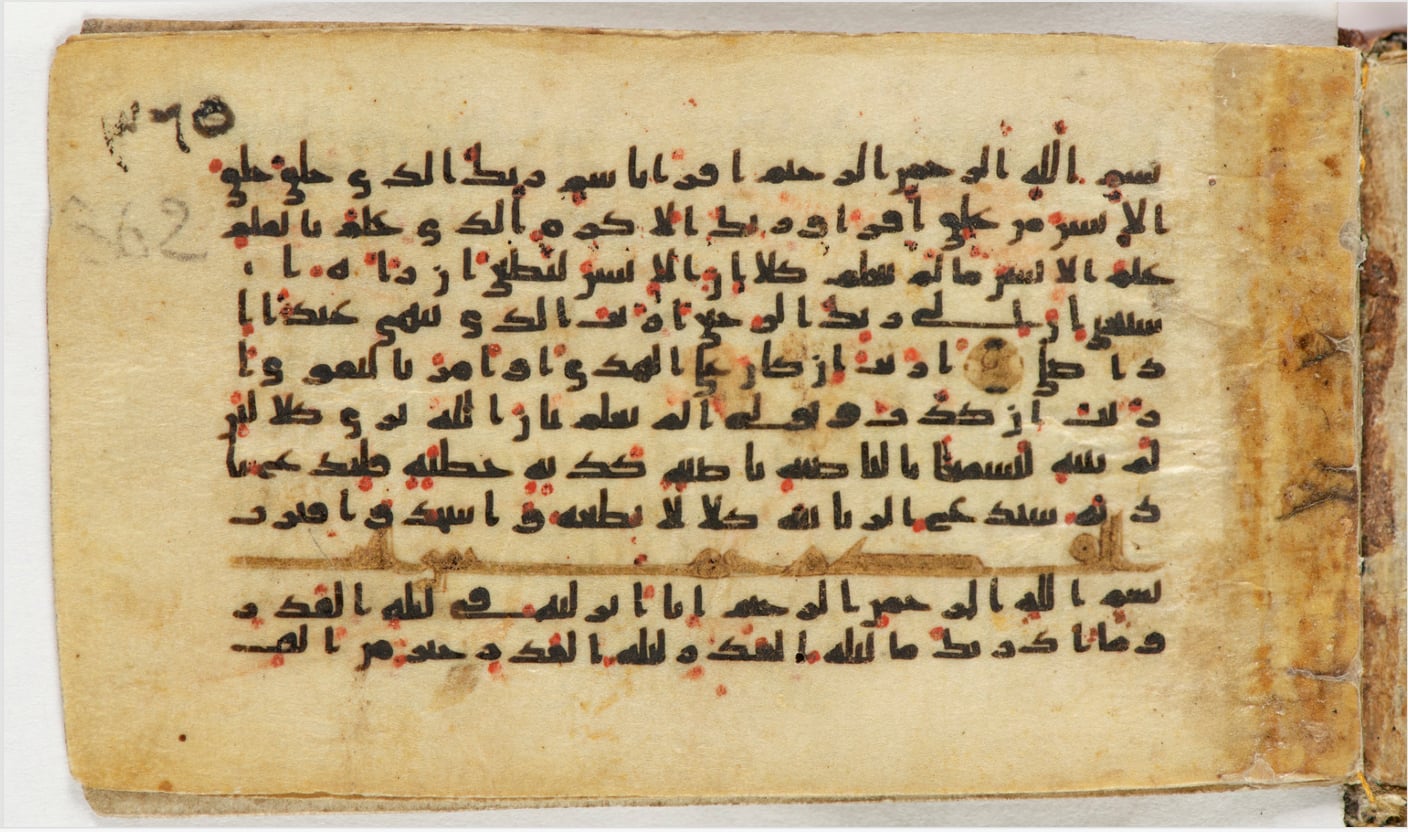 ٣٦٥
362
بسم الله الرحمن الرحيم اقرا باسم ربك الذي خلق خلق
الانسن من علق اقرا وربك الاكرم الذي علم بالقلم
علم الانسن ما لم يعلم كلا ان الانسن ليطغى ان راه ا
ستغنى ان الى ربك الرجعى اريت الذي ينهى عبدا ا
ذا صلى اريت ان كان على الهدى او امر بالتقوى ا
ريت ان كذب وتولى الم يعلم بان الله يرى كلا لئن
لم ينته لنسفعا بالناصية ناصية كذبة خطئة فليدع نا
ديه سندع الزبانية كلا لا تطعه واسجد واقترب
بسم الله الرحمن الرحيم انا انزلنه في ليلة القدر
وما ادريك ما ليلة القدر ليلة القدر خير من الف